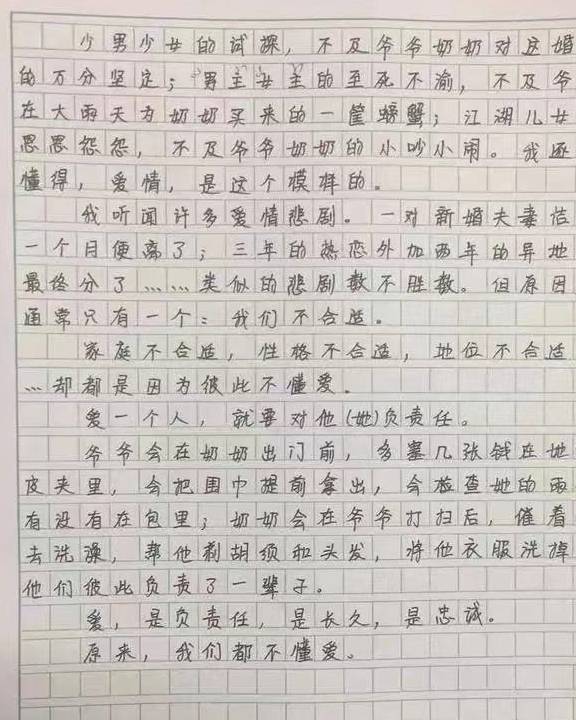 少男少女的试探，不及爷爷奶奶对这婚
的万分坚定；男主女主的至死不渝，不及爷
在大雨天为奶奶买来的一筐螃蟹；江湖儿女
恩恩怨怨，不及爷爷奶奶的小吵小闹。我还
懂得，爱情，是这个模样的。
我听闻许多爱情悲剧。一对新婚夫妻结
一个月便离了；三年的热恋外加两年的异地
最终分了……类似的悲剧数不胜数。但原因
通常只有一个：我们不合适。
家庭不合适，性格不合适，地位不合适
…却都是因为彼此不懂爱.
爱一个人，就要对他(她)负责任。
爷爷会在奶奶出门前，多塞几张钱在她
皮夹里，会把围巾提前拿出，会检查她的雨
有没有在包里；奶奶会在爷爷打扫后，催着
去洗澡，帮他剃胡须和头发，将他衣服洗掉
他们彼此负责了一辈子。
爱，是负责任，是长久，是忠诚。
原来，我们都不懂爱。